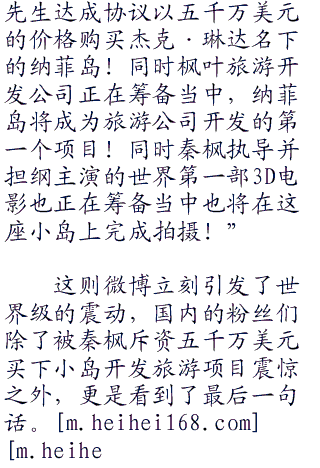 先生达成协议以五千万美元
的价格购买杰克·琳达名下
的纳菲岛！同时枫叶旅游开
发公司正在筹备当中，纳菲
岛将成为旅游公司开发的第
一个项目！同时秦枫执导并
担纲主演的世界第一部3D电
影也正在筹备当中也将在这
座小岛上完成拍摄！”
这则微博立刻引发了世
界级的震动，国内的粉丝们
除了被秦枫斥资五千万美元
买下小岛开发旅游项目震惊
之外，更是看到了最后一句
话。[m.heihei168.com]
[m.heihe